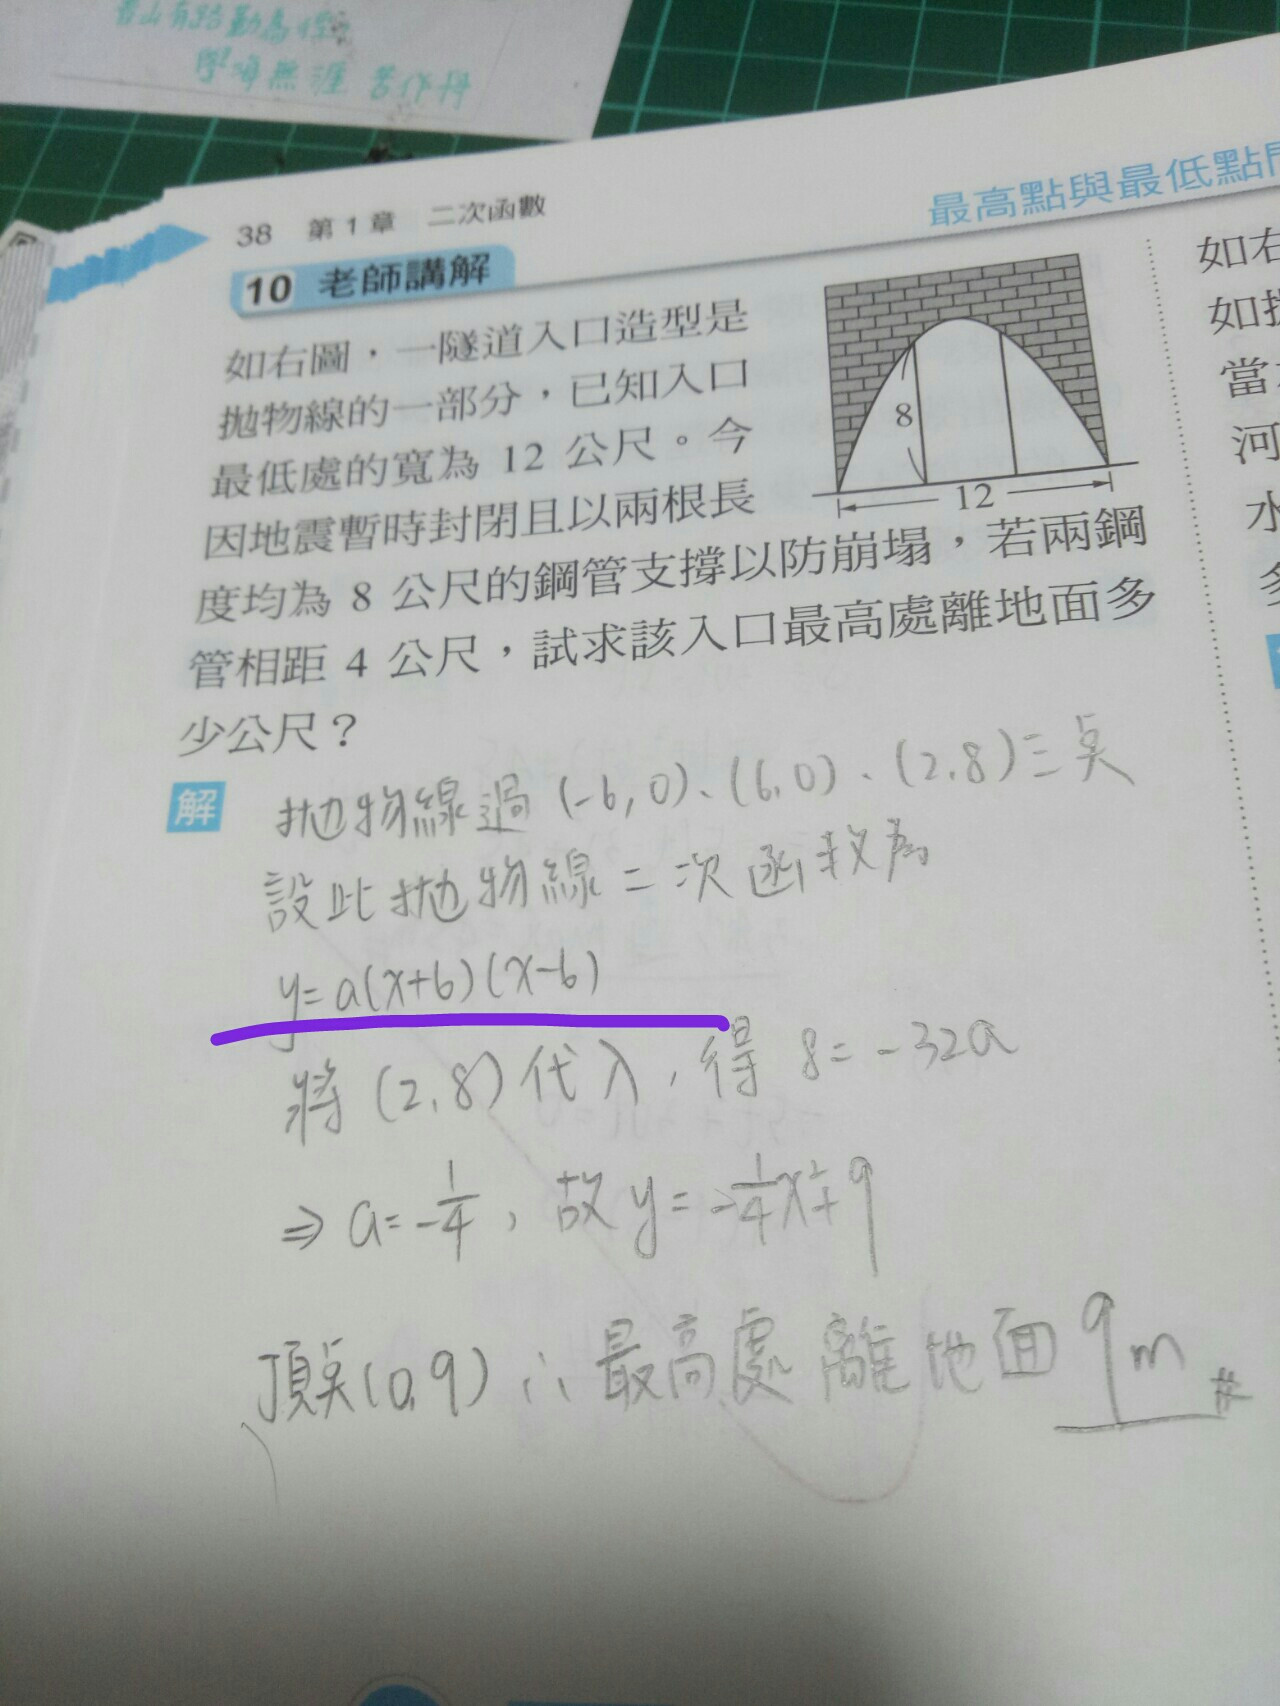 書山有路勤為徑
學海無涯苦作舟
38 第1章 二次函數
最高點與最低點
10 老師講解
如右圖，一隧道入口造型是
拋物線的一部分，已知入口
最低處的寬為 12 公尺。今
因地震暫時封閉且以兩根長
度均為 8 公尺的鋼管支撐以防崩塌，若兩鋼
管相距 4 公尺，試求該入口最高處離地面多
少公尺？
8
12
解
拋物線過 (-6,0)、(6,0)、(2,8)三點
設此拋物線二次函數為
y=a(x+6)(x-6)
將 (2,8) 代入，得 8=-32a
⇒ a=-1/4，故 y=-1/4x²+9
頂點(0,9) ∴最高處離地面 9m
如右
如
當
河
水
多